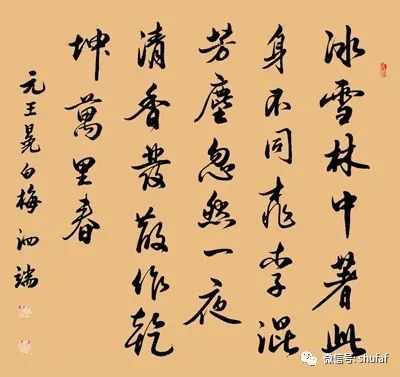 冰雪林中著此
身不同桃李混
芳塵忽然一夜
清香發散作乾
坤萬里春
元王冕白梅 泗端
微信号: shufaf